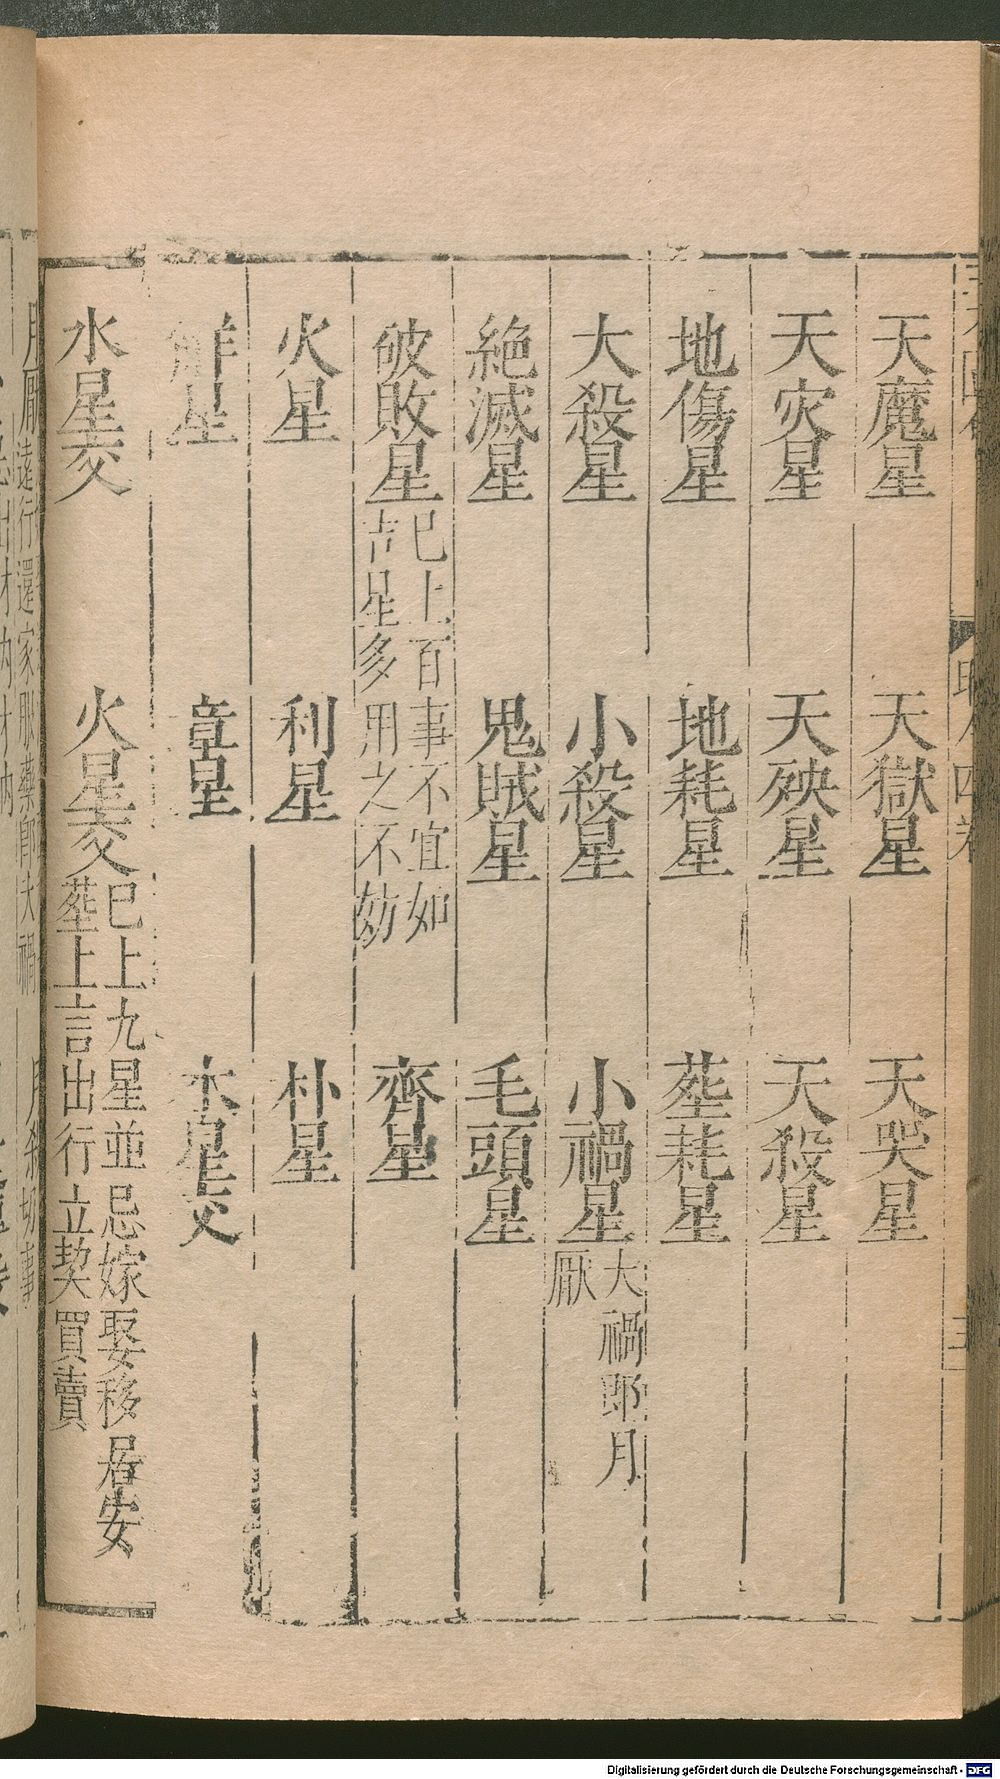 天魔星 天獄星 天哭星
天灾星 天殃星 天殺星
地傷星 地耗星 塟耗星
大殺星 小殺星 小禍星 大禍即月
厭
絶滅星 鬼賊星 毛頭星
破敗星 已上百事不宜如
吉星多用之不妨 齊星
火星 利星 朴星
觧星 章星 木星交
水星交 火星交 已上九星並忌嫁娶移居安
塟上言出行立契買賣
月厭遠行還家服藥
Digitalisierung gefördert durch die Deutsche Forschungsgemeinschaft - DFG